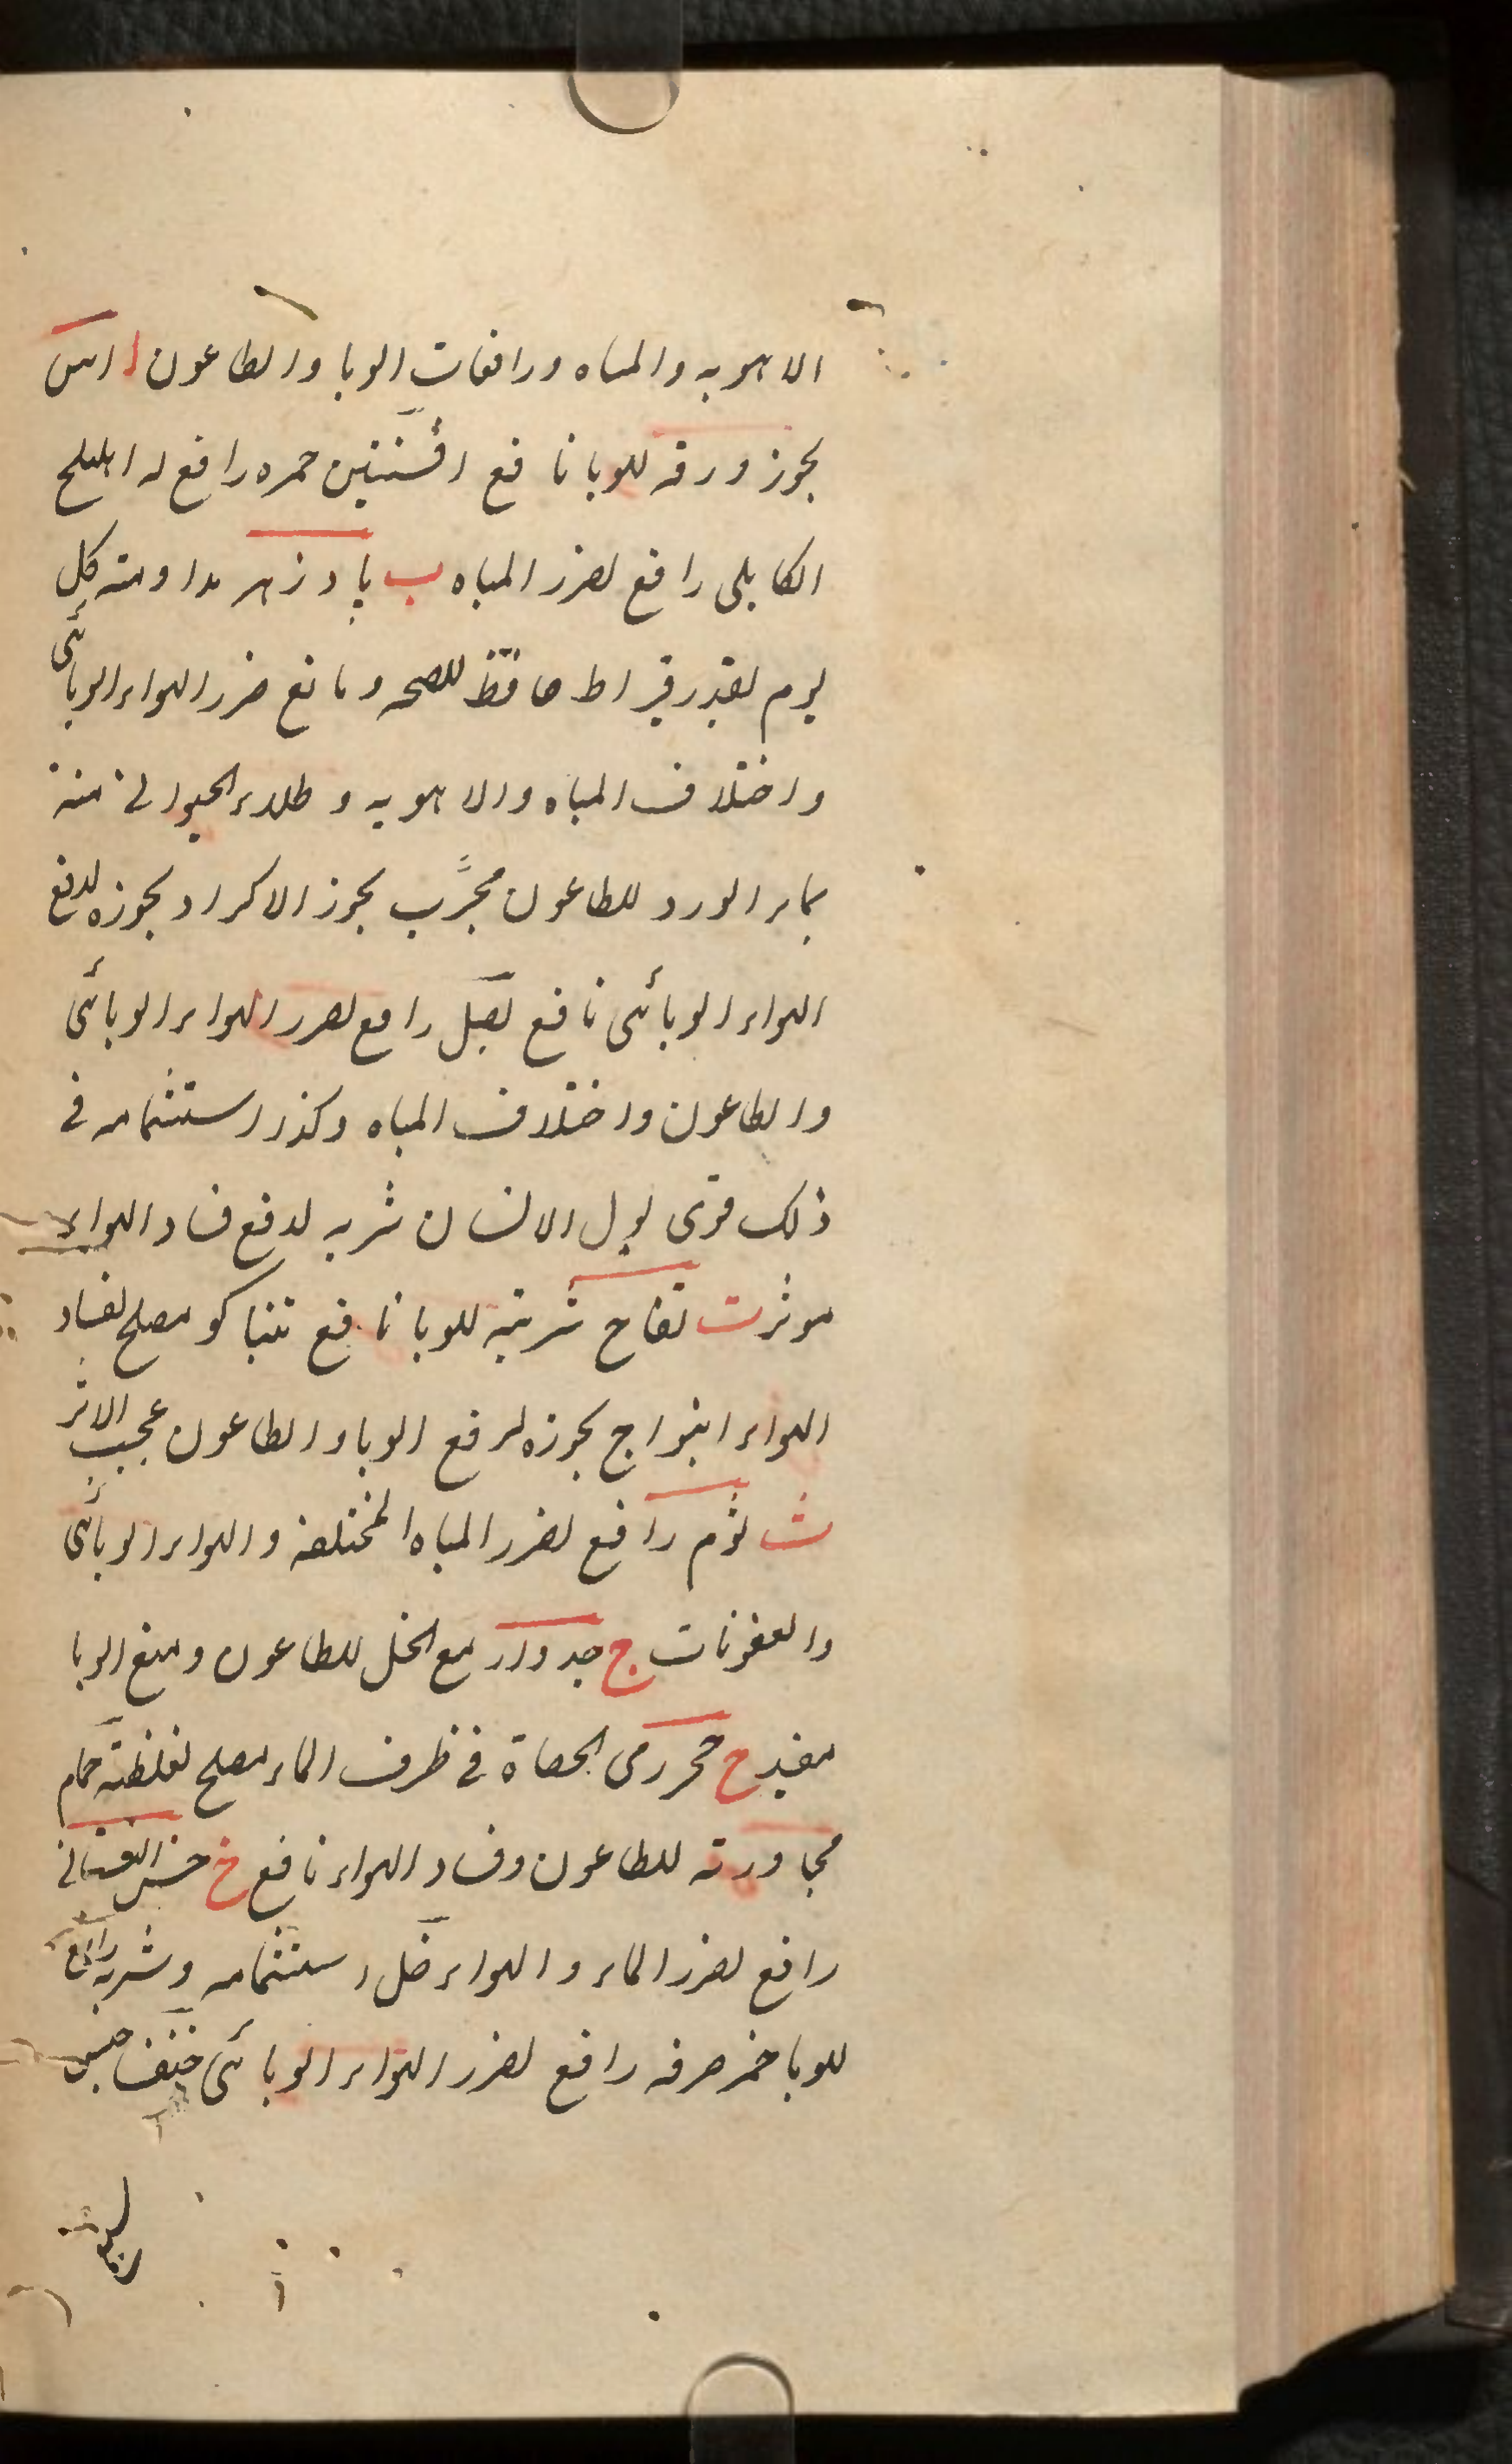 الاهویه والمیاه ورافعات الوبا والطاعون ا اس
بخور ورقه للوبا نافع افسنتین خمره رافع له اهلیلج
الکابلی رافع لضرر المیاه ب بادزهر مداومته کل
یوم بقدر قیراط حافظ للصحه ومانع ضرر الهواء الوبائی
واختلاف المیاه والاهویه وطلاء الحیوانی منه
بماء الورد للطاعون مجرب بخور الاکراد بخوره لدفع
الهواء الوبائی نافع بصل رافع لضرر الهواء الوبائی
والطاعون واختلاف المیاه وکذا استشمامه فی
ذلک قوی بول الانسان شربه لدفع فساد الهواء
موثر ت تفاح شربته للوبا نافع تنباکو مصلح لفساد
الهواء بخوره لرفع الوبا والطاعون عجیب الاثر
ث ثوم رافع لضرر المیاه المختلفة والهواء الوبائی
والعفونات ج جدوار مع الخل للطاعون ومنع الوبا
مفید ح حجر رمی الحصاة فی ظرف الماء مصلح لغلظته حمام
مجاورته للطاعون وفساد الهواء نافع خ خس
رافع لضرر الماء والهواء خل استشمامه وشربه رافع
للوبا خمر صرفه رافع لضرر الهواء الوبائی